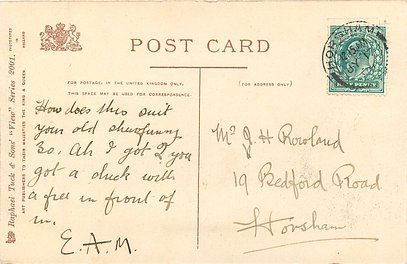 POST CARD
FOR POSTAGE, IN THE UNITED KINGDOM ONLY,
THIS SPACE MAY BE USED FOR CORRESPONDENCE.
(FOR ADDRESS ONLY)
Raphael Tuck & Sons' "View" Series 2001.
ART PUBLISHERS TO THEIR MAJESTIES THE KING & QUEEN.
HORSHAM
How does this suit
your old
So. Ah I got 2 you
got a duck with
a free in front of
in.
E.A.M.
J H Rowland
19 Bedford Road
Horsham